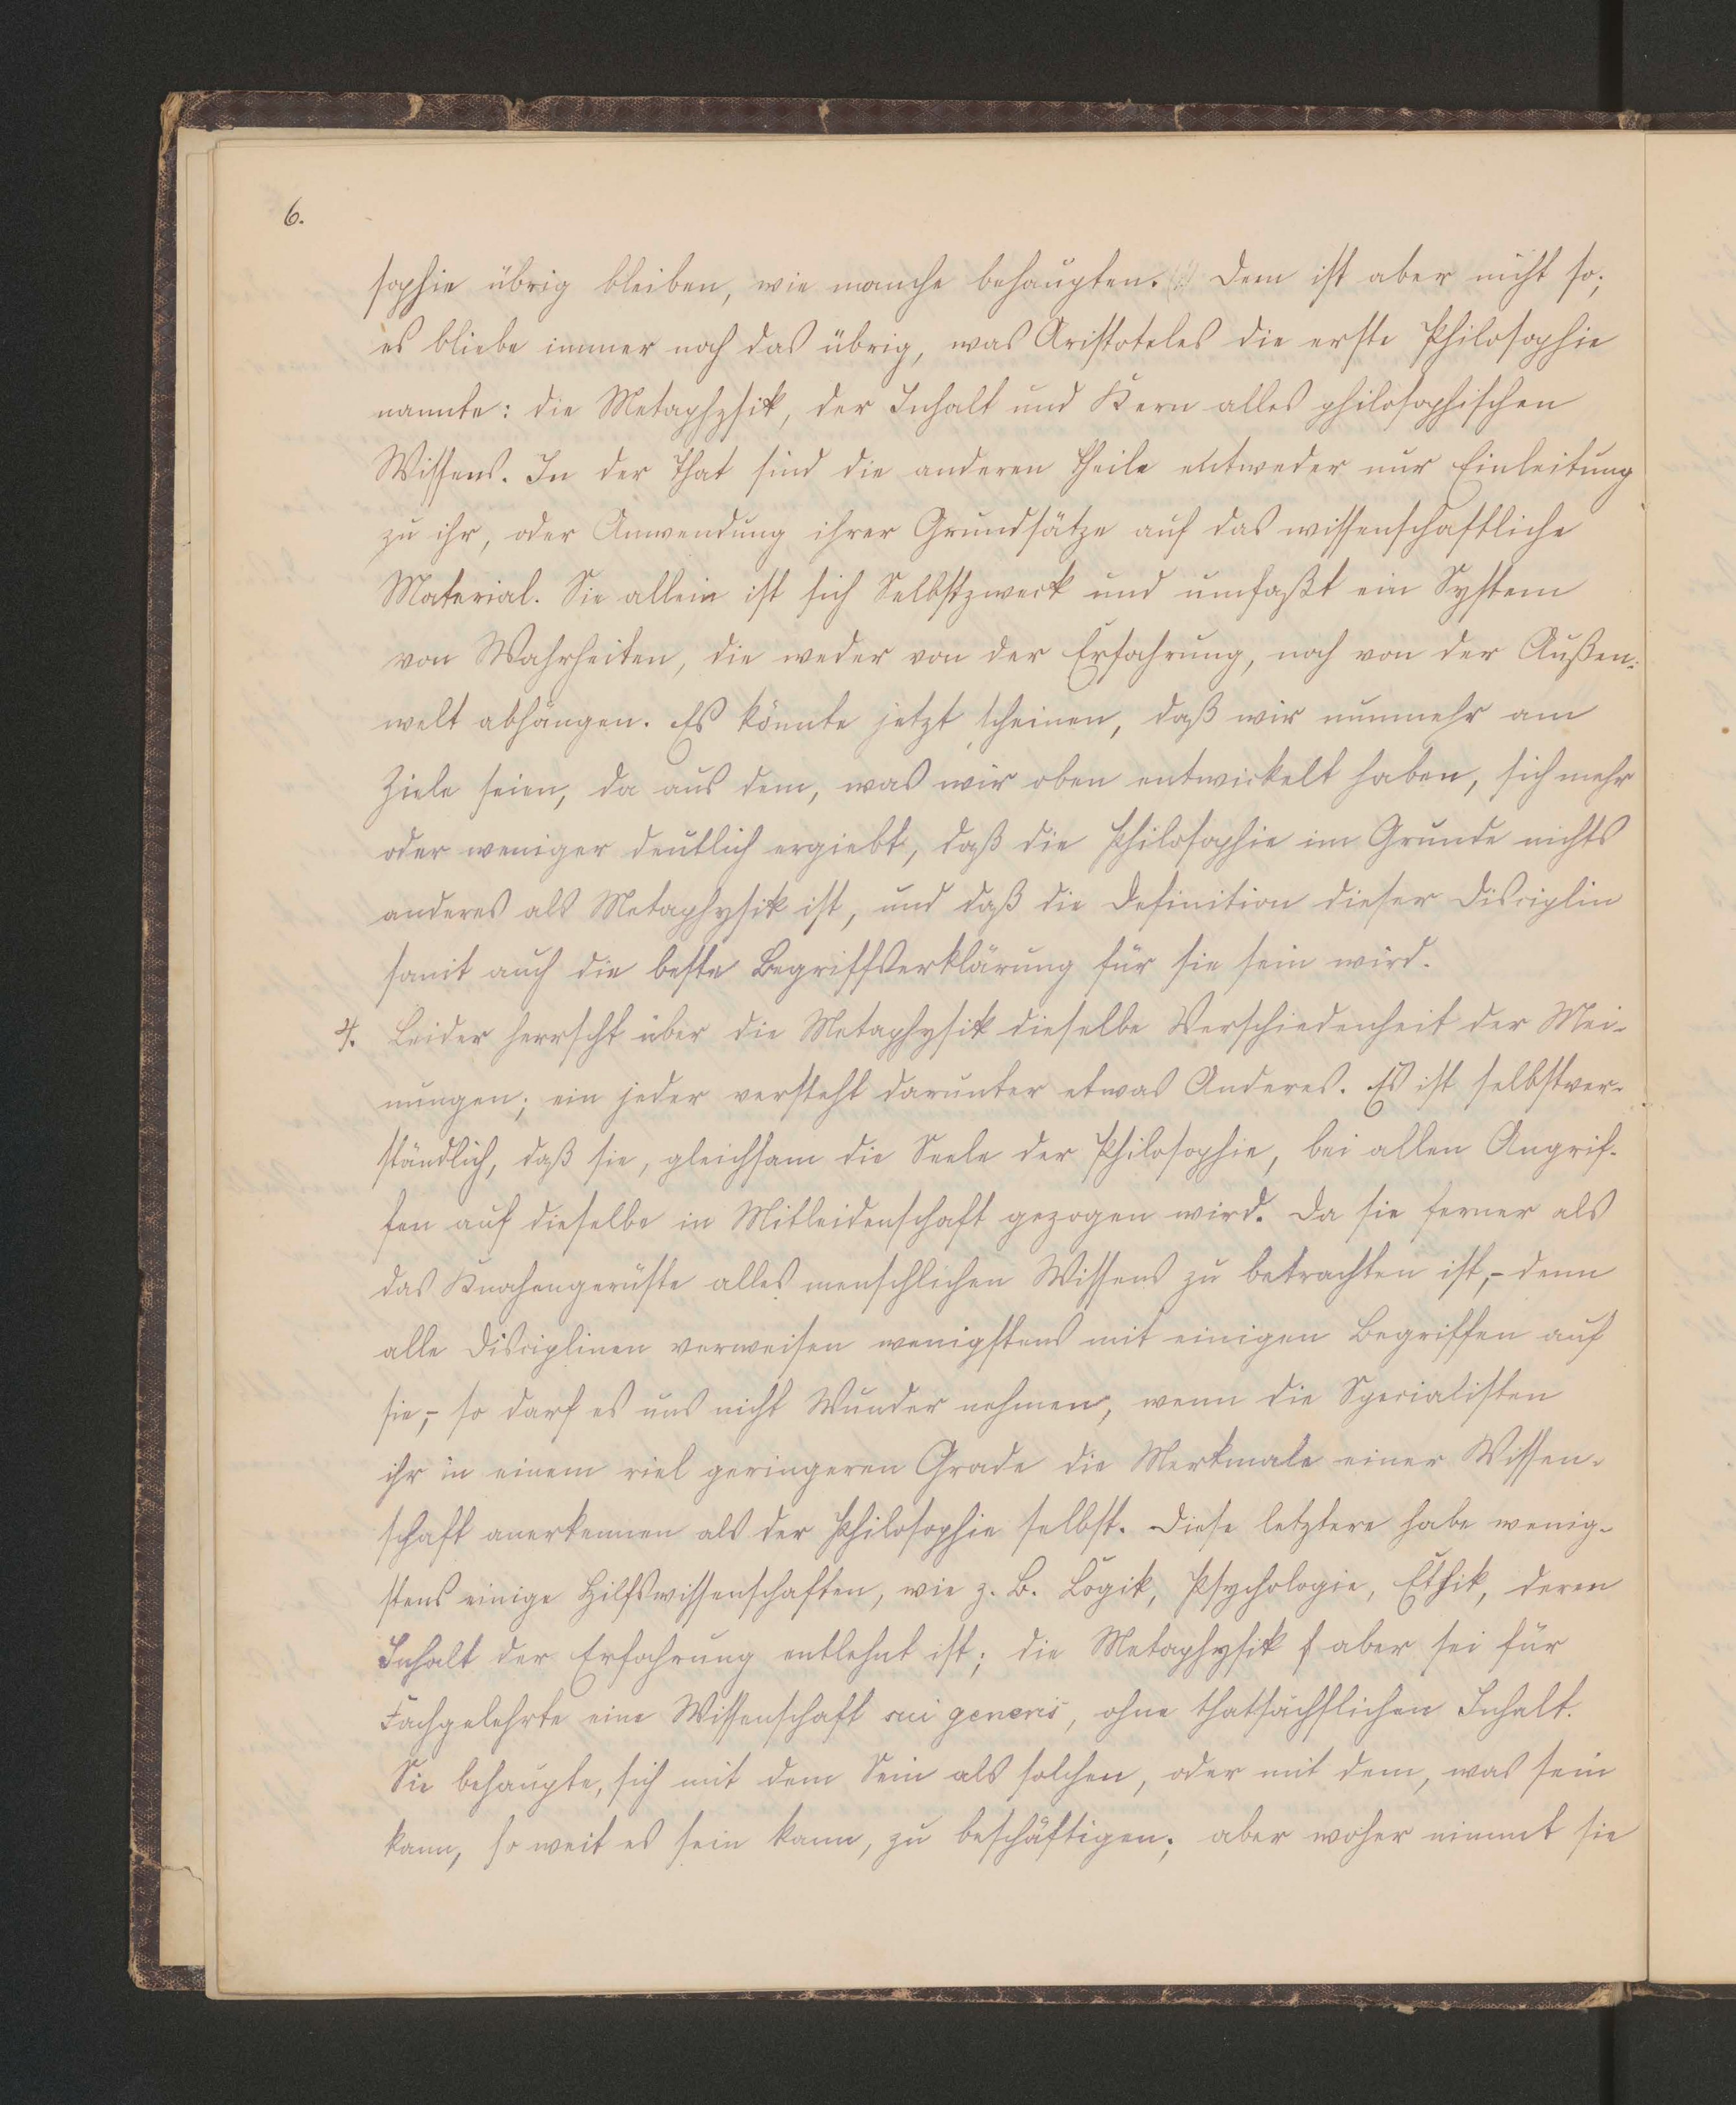 6.
sophie übrig bleiben, wie manche behaupten. Dem ist aber nicht so;
es bliebe immer noch das übrig, was Aristoteles die erste Philosophie
nannte: die Metaphysik, der Inhalt und Kern alles philosophischen
Wissens. In der That sind die anderen Theile entweder nur Einleitung
zu ihr, oder Anwendung ihrer Grundsätze auf das wissenschaftliche
Material. Sie allein ist sich Selbstzweck und umfaßt ein System
von Wahrheiten, die weder von der Erfahrung, noch von der Außen-
welt abhängen. Es könnte jetzt scheinen, daß wir nunmehr am
Ziele seien, da aus dem, was wir oben entwickelt haben, sich mehr
oder weniger deutlich ergiebt, daß die Philosophie im Grunde nichts
anderes als Metaphysik ist, und daß die Definition dieser Disciplin
somit auch die beste Begriffserklärung für sie sein wird.
4. Leider herrscht über die Metaphysik dieselbe Verschiedenheit der Mei-
nungen; ein jeder versteht darunter etwas Anderes. Es ist selbstver-
ständlich, daß sie, gleichsam die Seele der Philosophie, bei allen Angrif-
fen auf dieselbe in Mitleidenschaft gezogen wird. Da sie ferner als
das Knochengerüste alles menschlichen Wissens zu betrachten ist,- denn
alle Disciplinen verweisen wenigstens mit einigen Begriffen auf
sie,- so darf es uns nicht Wunder nehmen, wenn die Specialisten
ihr in einem viel geringeren Grade die Merkmale einer Wissen-
schaft anerkennen als der Philosophie selbst. Diese letztere habe wenig-
stens einige Hilfswissenschaften, wie z. B. Logik, Psychologie, Ethik, deren
Inhalt der Erfahrung entlehnt ist; die Metaphysik aber sei für
Fachgelehrte eine Wissenschaft sui generis, ohne thatsächlichen Inhalt.
Sie behaupte, sich mit dem Sein als solchen, oder mit dem, was sein
kann, so weit es sein kann, zu beschäftigen; aber woher nimmt sie